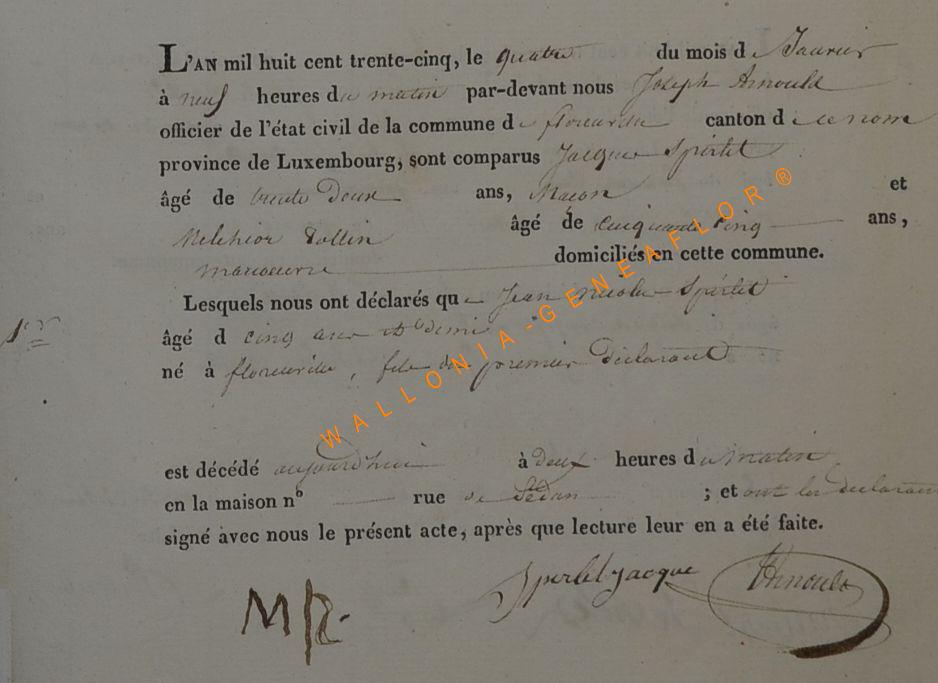 L'AN mil huit cent trente-cinq, le quatre du mois de Janvier
à neuf heures du matin par-devant nous Joseph Arnould
officier de l'état civil de la commune de florenville canton de ce nom
province de Luxembourg, sont comparus Jacque Spérlet
âgé de trente Deux ans, Macon et
Melchior âgé de cinquante cinq ans,
manoeuvre domiciliés en cette commune.
Lesquels nous ont déclarés que Jean nicolas Spérlet
1er
âgé d cinq ans et demi
né à florenville, fils du premier déclarant
est décédé aujourd'hui à deux heures du matin
en la maison nº rue de Sédan ; et ont les déclarant
signé avec nous le présent acte, après que lecture leur en a été faite.
Sperlet jacque Arnould
WALLONIA-GENEAFLOR®